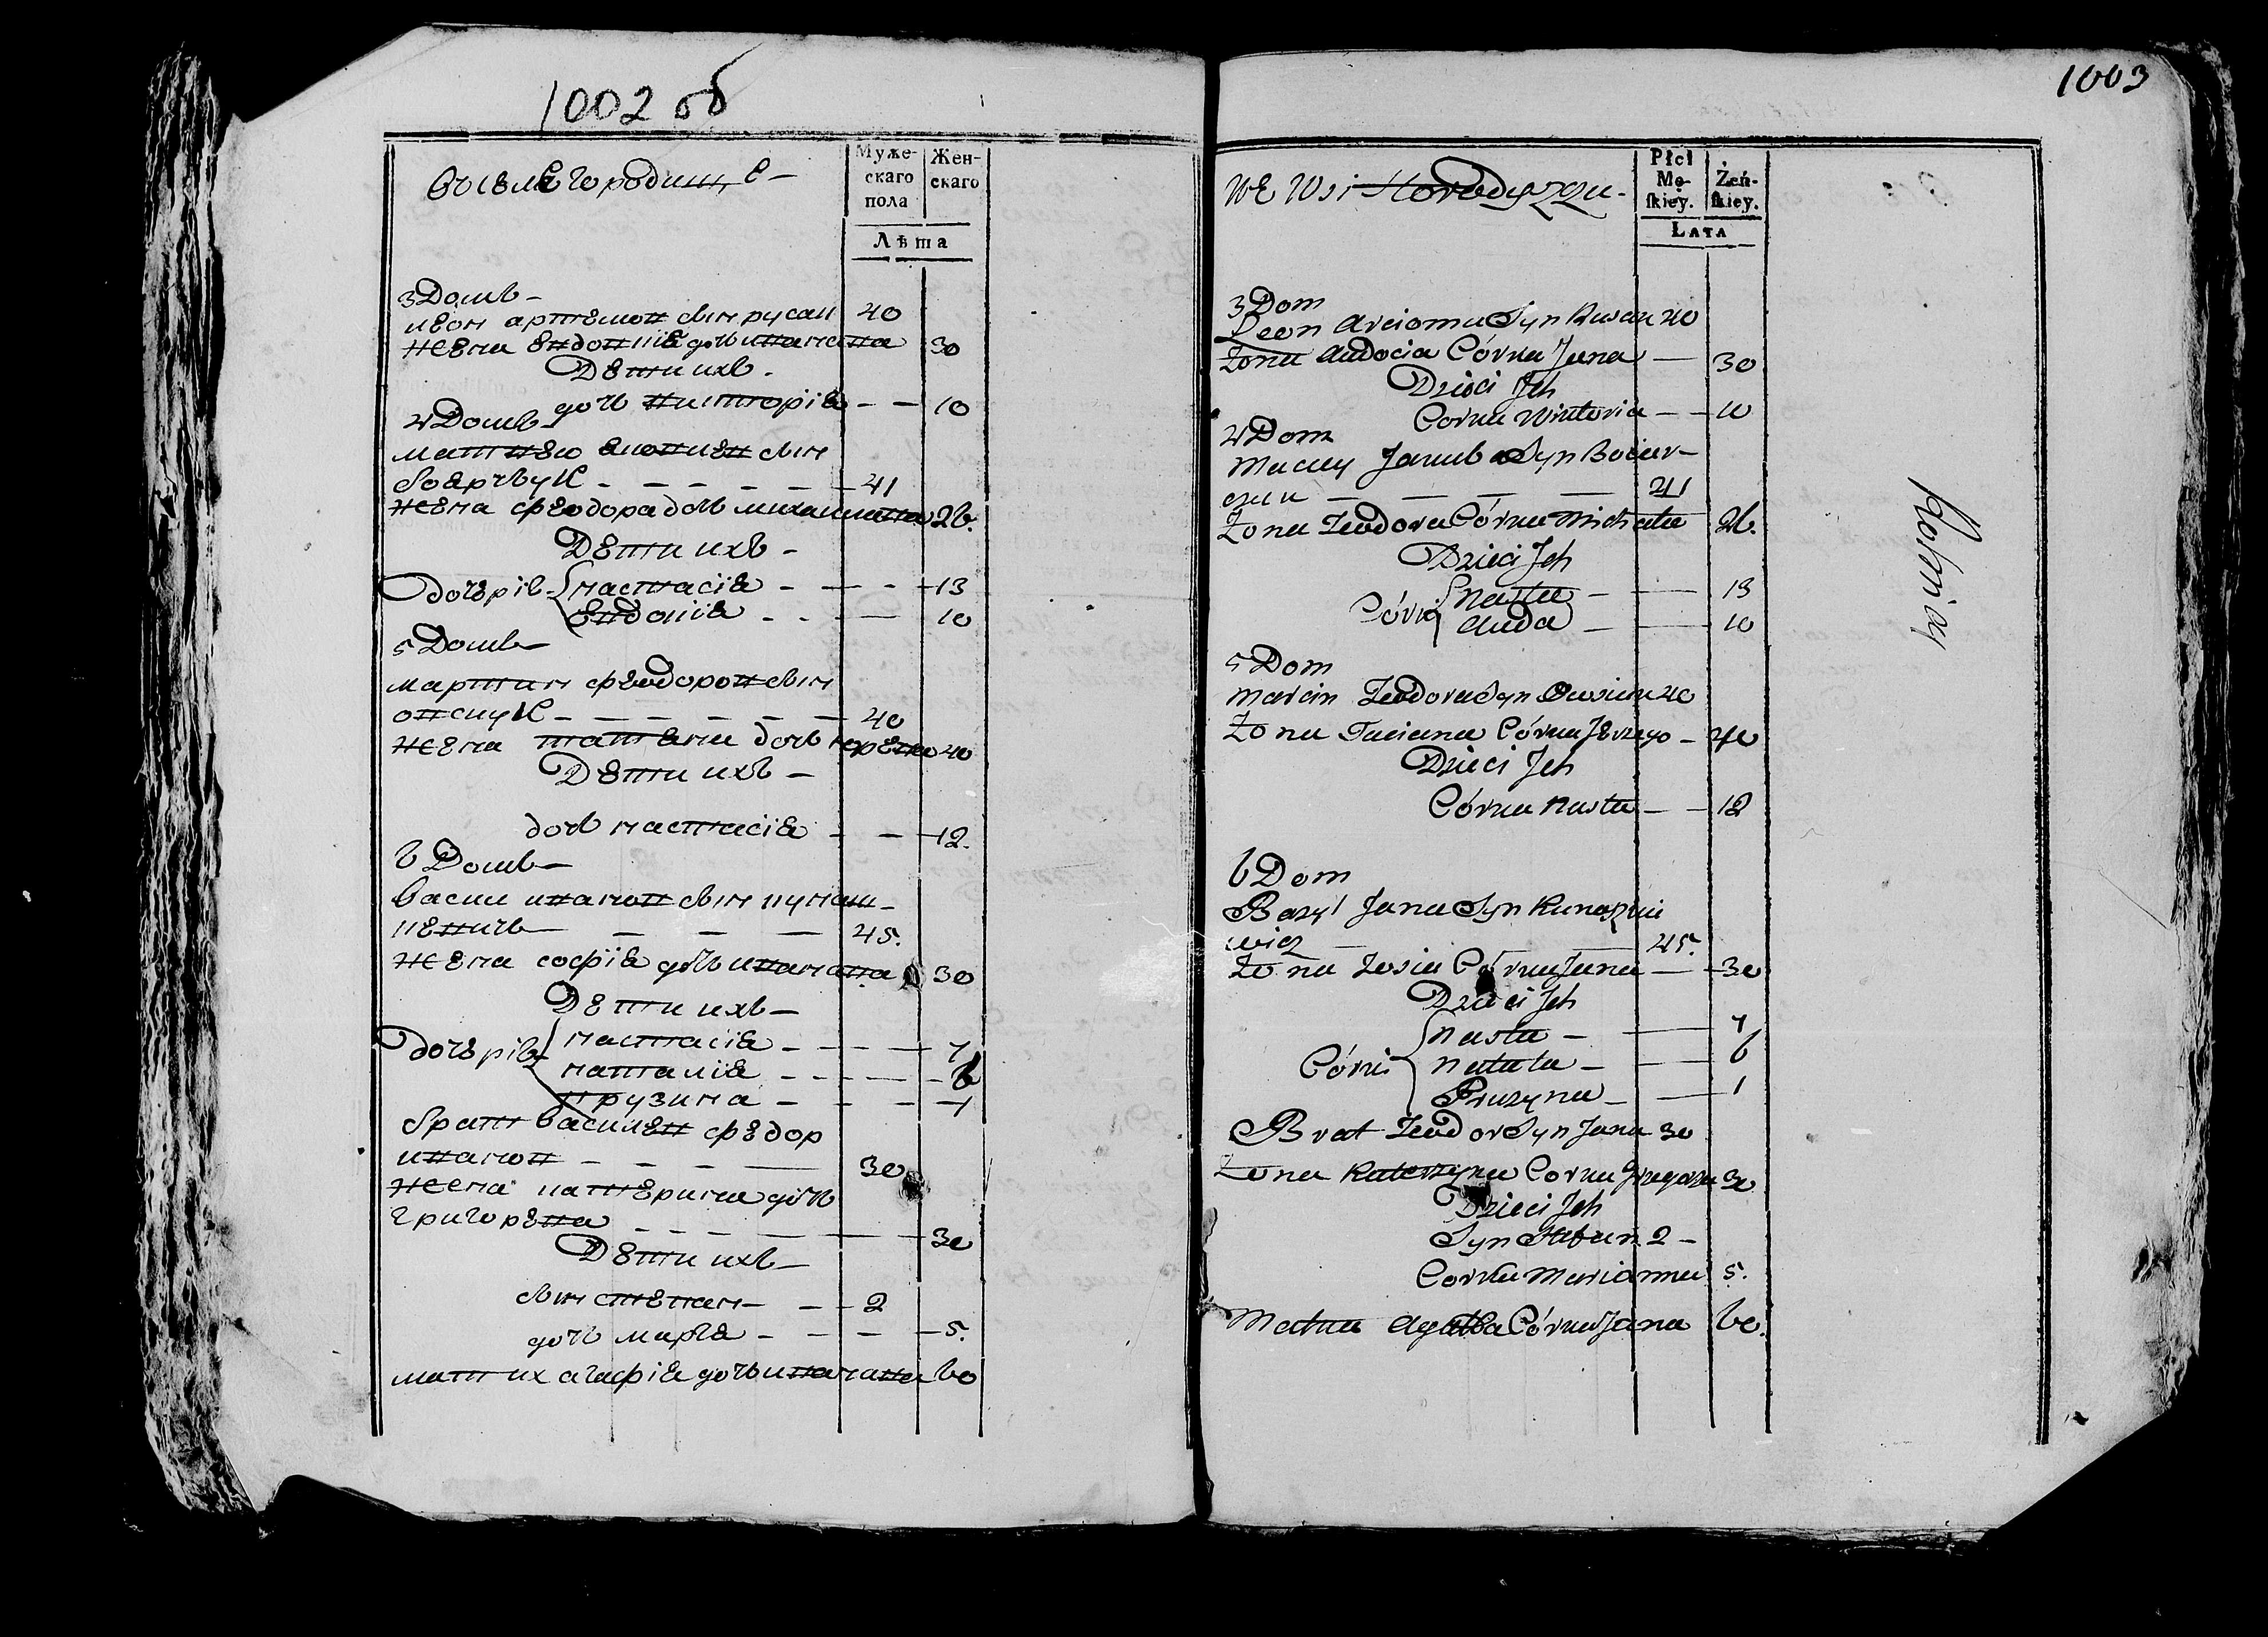 1002 об
въ селе городище
Муже-
скаго
пола
Жен-
скаго
Лѣта
3 Домъ
леон артемов сын русак 40
жена евдокия дочь иванава 30
Дети ихъ
дочь викторія 10
4 Домъ
матвею яковлев сын
боярчук 41
жена феодора дочь михаилава 26.
Дети ихъ
дочеріи настасія 13
евдокія 10
5 Домъ
мартин феодоров сын
овсиук 40
жена татяна дочь 40
Дети ихъ
дочь настасія 12.
6 Домъ
васил иванов сын
45.
жена софія дочь иванава 30
Дети ихъ
дочеріи настасія 7
наталія 6
прузина 1
брат василев федор
иванов 30
жена катерина дочь
григорева 30
Дети ихъ
сын степан 2
дочь маря 5.
мат их агафія дочь иванава 60
1003
We Wsi Horodyszczu
Płci
Mę-
skiéy.
Żeń-
skiey.
Lata
3 Dom
Leon Arcioma Syn Rusak 40
Żona Audocia Córka Jana 30
Dzieci Jch
Corka Wiktoria 10
4 Dom
Maciey Jakuba Syn Boiar-
czuk 41
Żona Teodora Córka Michała 26.
Dzieci Jch
Córki Nasta 13
Auda 10
5 Dom
Marcin Teodora Syn Owsiuk 40
Żona Taciana Córka Jerzego 40
Dzieci Jch
Córka Nasta 12
6 Dom
Bazyl Jana Syn
wicz 45.
Żona Zosia Córka Jana 30
Dzieci Jch
Córki Nasta 7
Natala 6
Pruzyna 1
Brat Teodor Syn Jana 30
Żona Katerzyna Corka Grzegorza 30
Dzieci Jch
Syn Stefan 2
Corka Marianna 5.
Matka Agatha Córka Jana 60.
Rolnicy